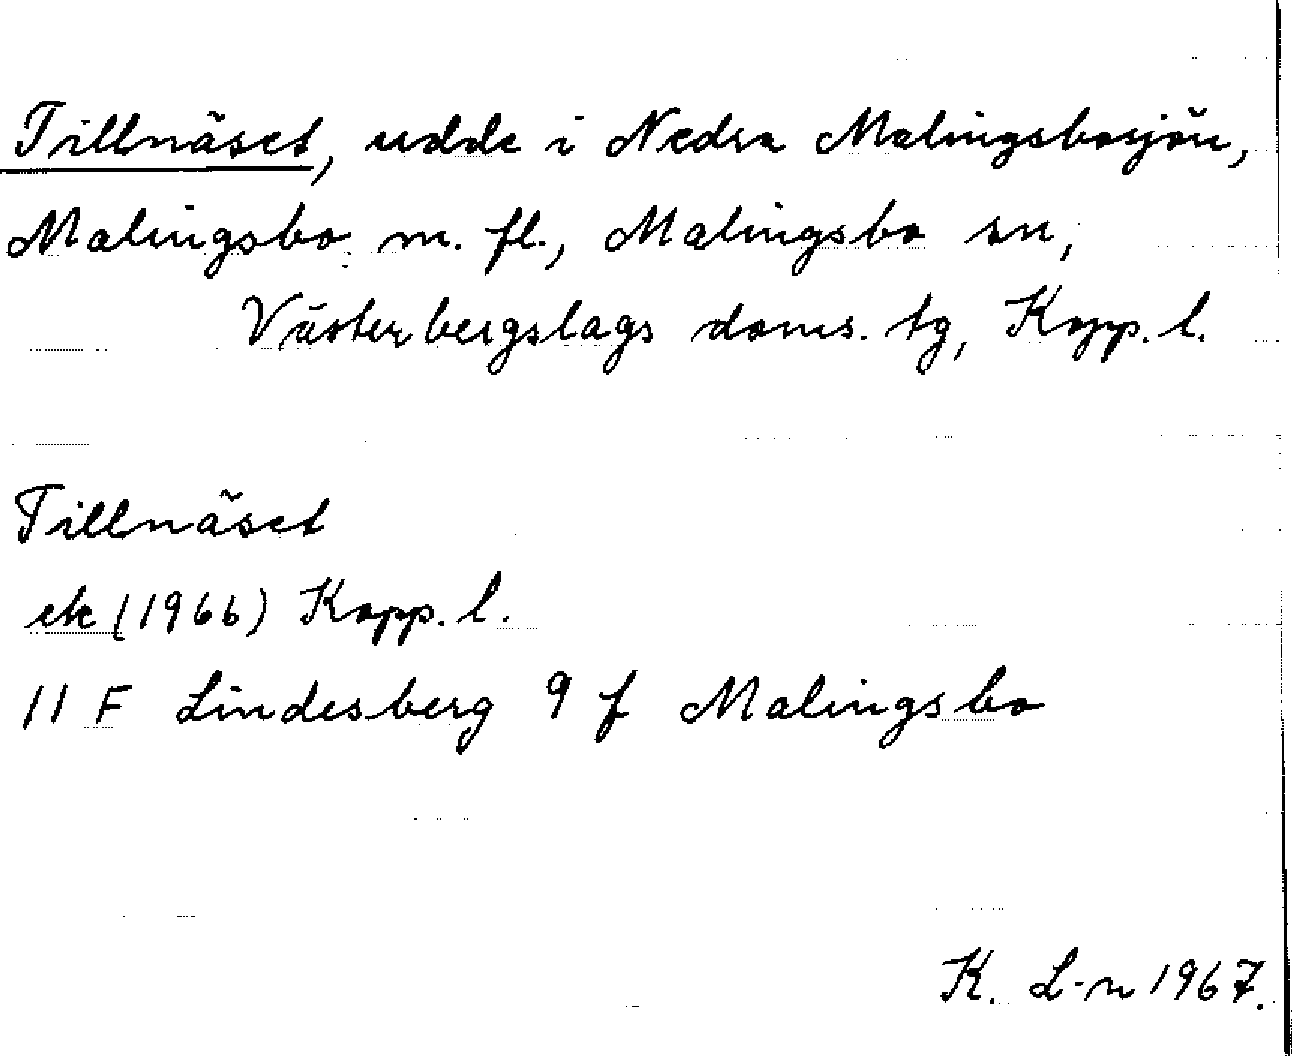 Tillnäset, udde i Nedra Malingsbosjön,
Malingsbo m. fl., Malingsbo sn,
Västerbergslags doms. tg, Kopp. l.
Tillnäset
ek (1966) Kopp. l.
11 F Lindesberg 9 f Malingsbo
K. L-n 1967.